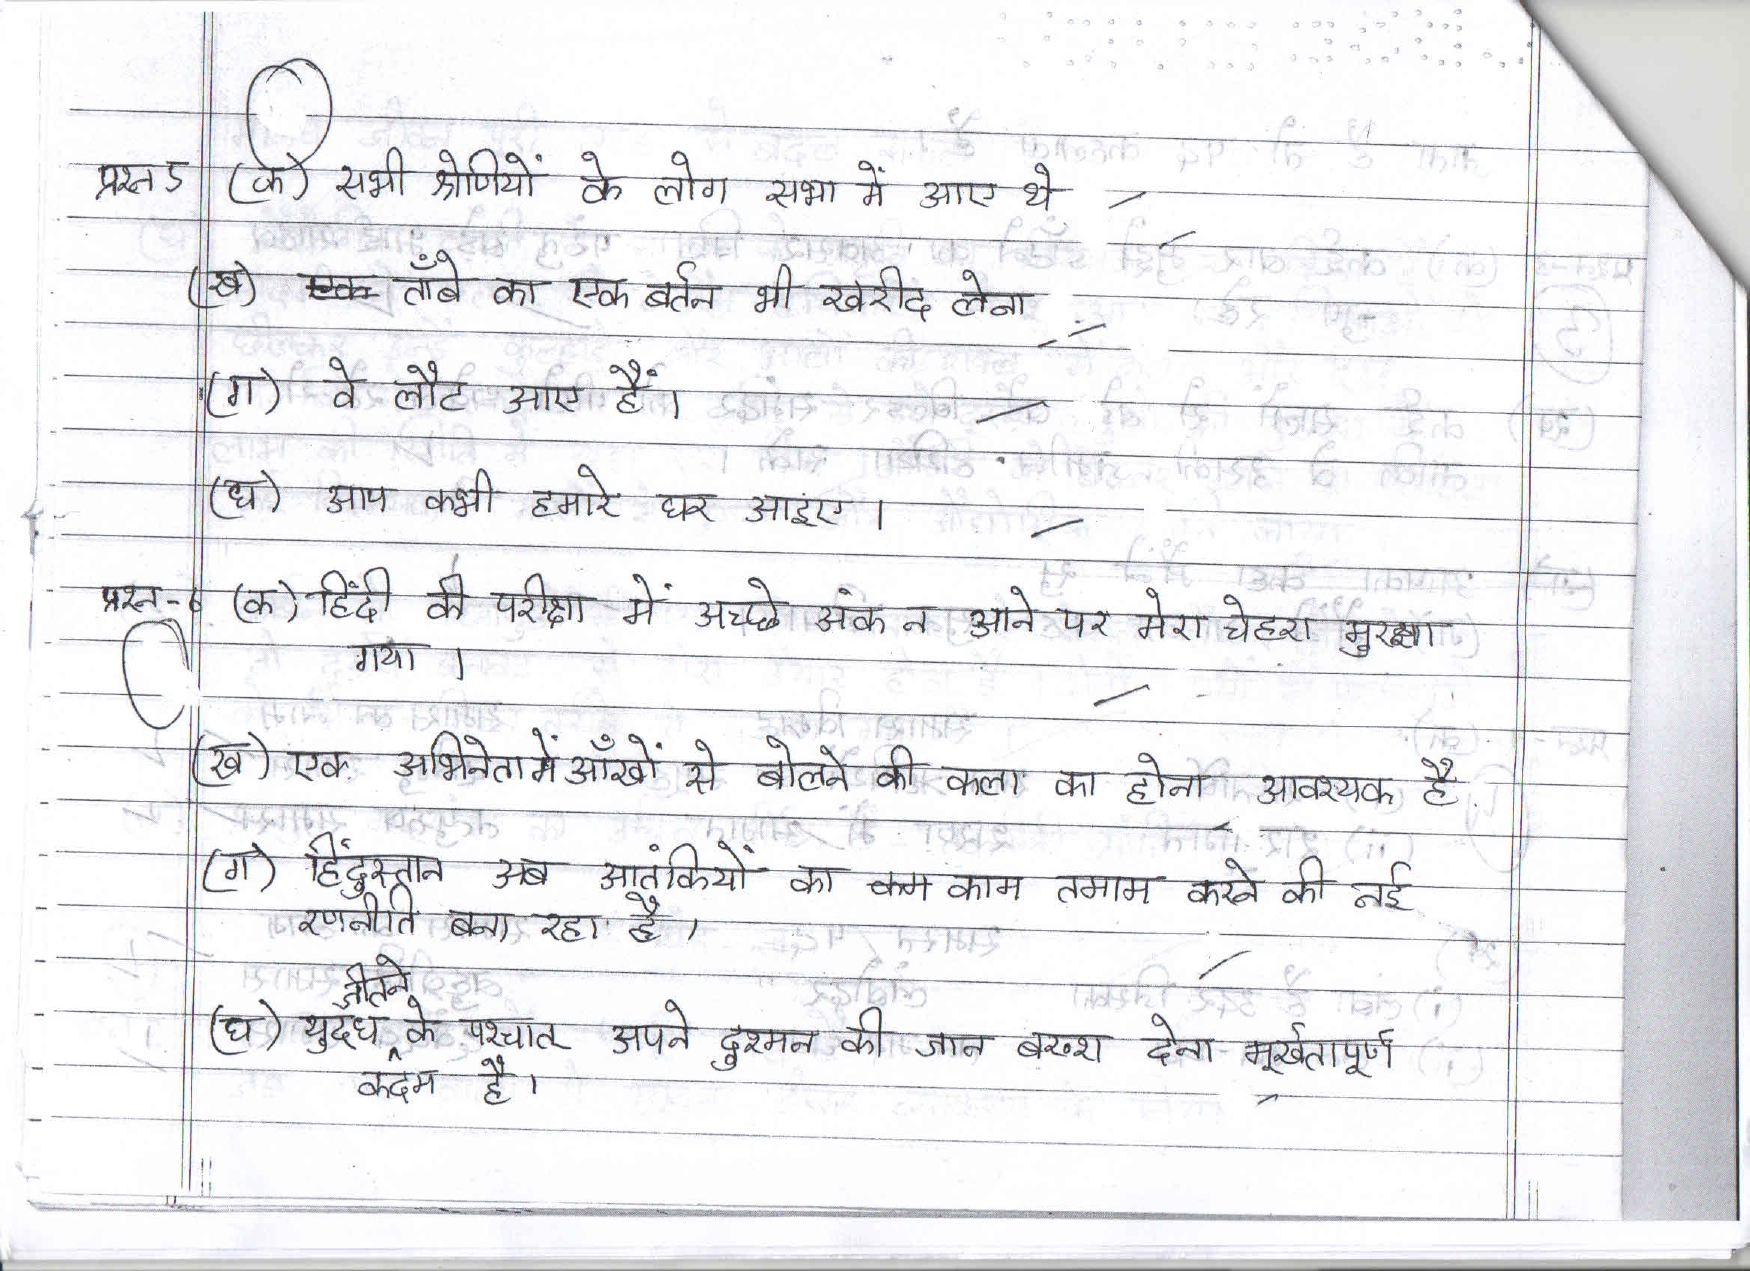 प्रश्न 5 (क) सभी श्रेणियों के लोग सभा में आए थे
(ख) एक ताँबे का एक बर्तन भी खरीद लेना
(ग) वे लौट आए हैं।
(घ) आप कभी हमारे घर आइए।
प्रश्न-6 (क) हिंदी की परीक्षा में अच्छे अंक न आने पर मेरा चेहरा मुरझा
गया।
(ख) एक अभिनेता में आँखों से बोलने की कला का होना आवश्यक है
(ग) हिंदुस्तान अब आतंकियों का कम काम तमाम करने की नई
रणनीति बना रहा है।
जीतने
(घ) युद्ध के पश्चात अपने दुश्मन की जान बख्श देना मूर्खतापूर्ण
कदम है।